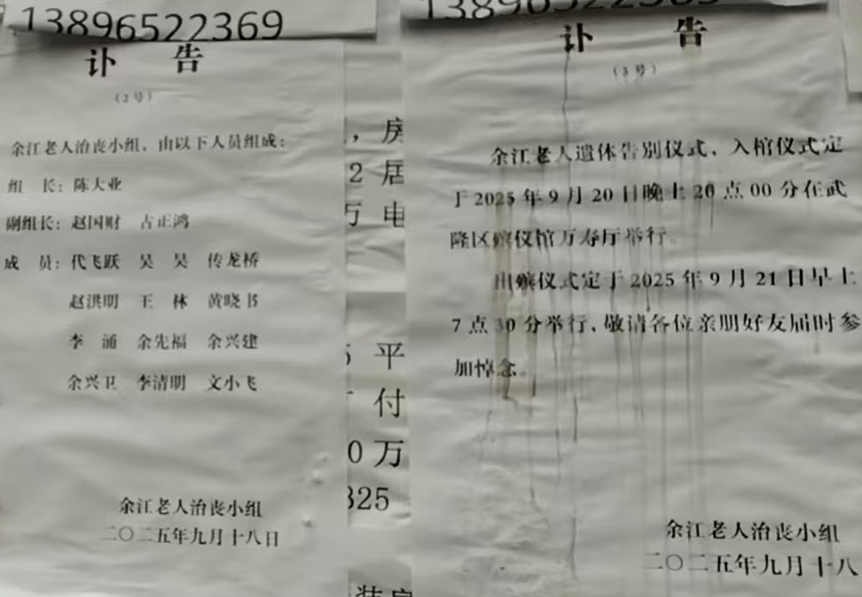 13896522369
讣 告
（2号）
余江老人治丧小组，由以下人员组成：
组 长：陈大业
副组长：赵国财 古正鸿
成 员：代飞跃 吴 昊 传龙桥
赵洪明 王 林 黄晓书
李 涌 余先福 余兴建
余兴卫 李清明 文小飞
余江老人治丧小组
二〇二五年九月十八日
，房
2 居
万 电
平
付
0万
325
装房
讣 告
（3号）
余江老人遗体告别仪式，入棺仪式定
于2025年9月20日晚上20点00分在武
隆区殡仪馆万寿厅举行。
出殡仪式定于2025年9月21日早上
7点30分举行，敬请各位亲朋好友届时参
加悼念。
余江老人治丧小组
二〇二五年九月十八